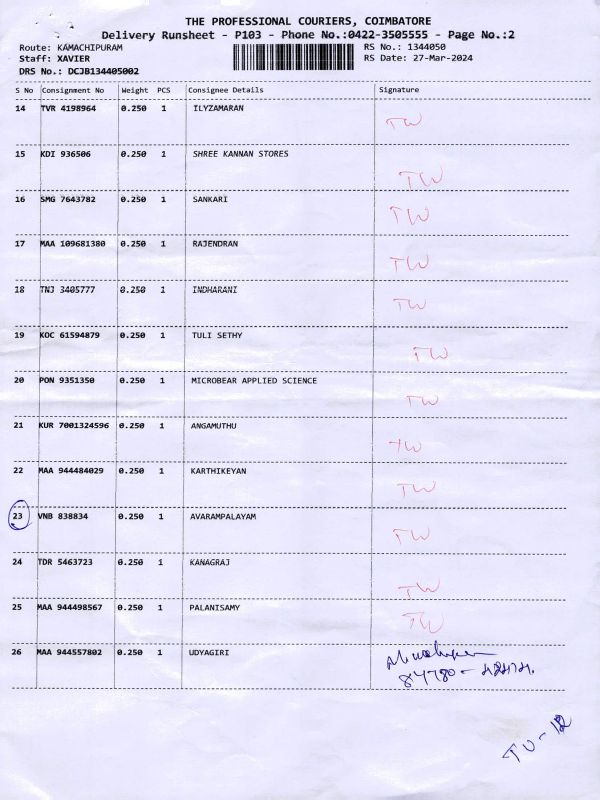 THE PROFESSIONAL COURIERS, COIMBATORE
Delivery Runsheet - P103 - Phone No.:0422-3505555 - Page No.:2
Route: KAMACHIPURAM RS No.: 1344050
Staff: XAVIER RS Date: 27-Mar-2024
DRS No.: DCJB134405002
S No Consignment No Weight PCS Consignee Details Signature
14 TVR 4198964 0.250 1 ILYZAMARAN TW
15 KDI 936506 0.250 1 SHREE KANNAN STORES TW
16 SMG 7643782 0.250 1 SANKARI TW
17 MAA 109681380 0.250 1 RAJENDRAN TW
18 TNJ 3405777 0.250 1 INDHARANI TW
19 KOC 61594879 0.250 1 TULI SETHY TW
20 PON 9351350 0.250 1 MICROBEAR APPLIED SCIENCE TW
21 KUR 7001324596 0.250 1 ANGAMUTHU TW
22 MAA 944484029 0.250 1 KARTHIKEYAN TW
23 VNB 838834 0.250 1 AVARAMPALAYAM TW
24 TDR 5463723 0.250 1 KANAGRAJ TW
25 MAA 944498567 0.250 1 PALANISAMY TW
26 MAA 944557802 0.250 1 UDYAGIRI
84780-